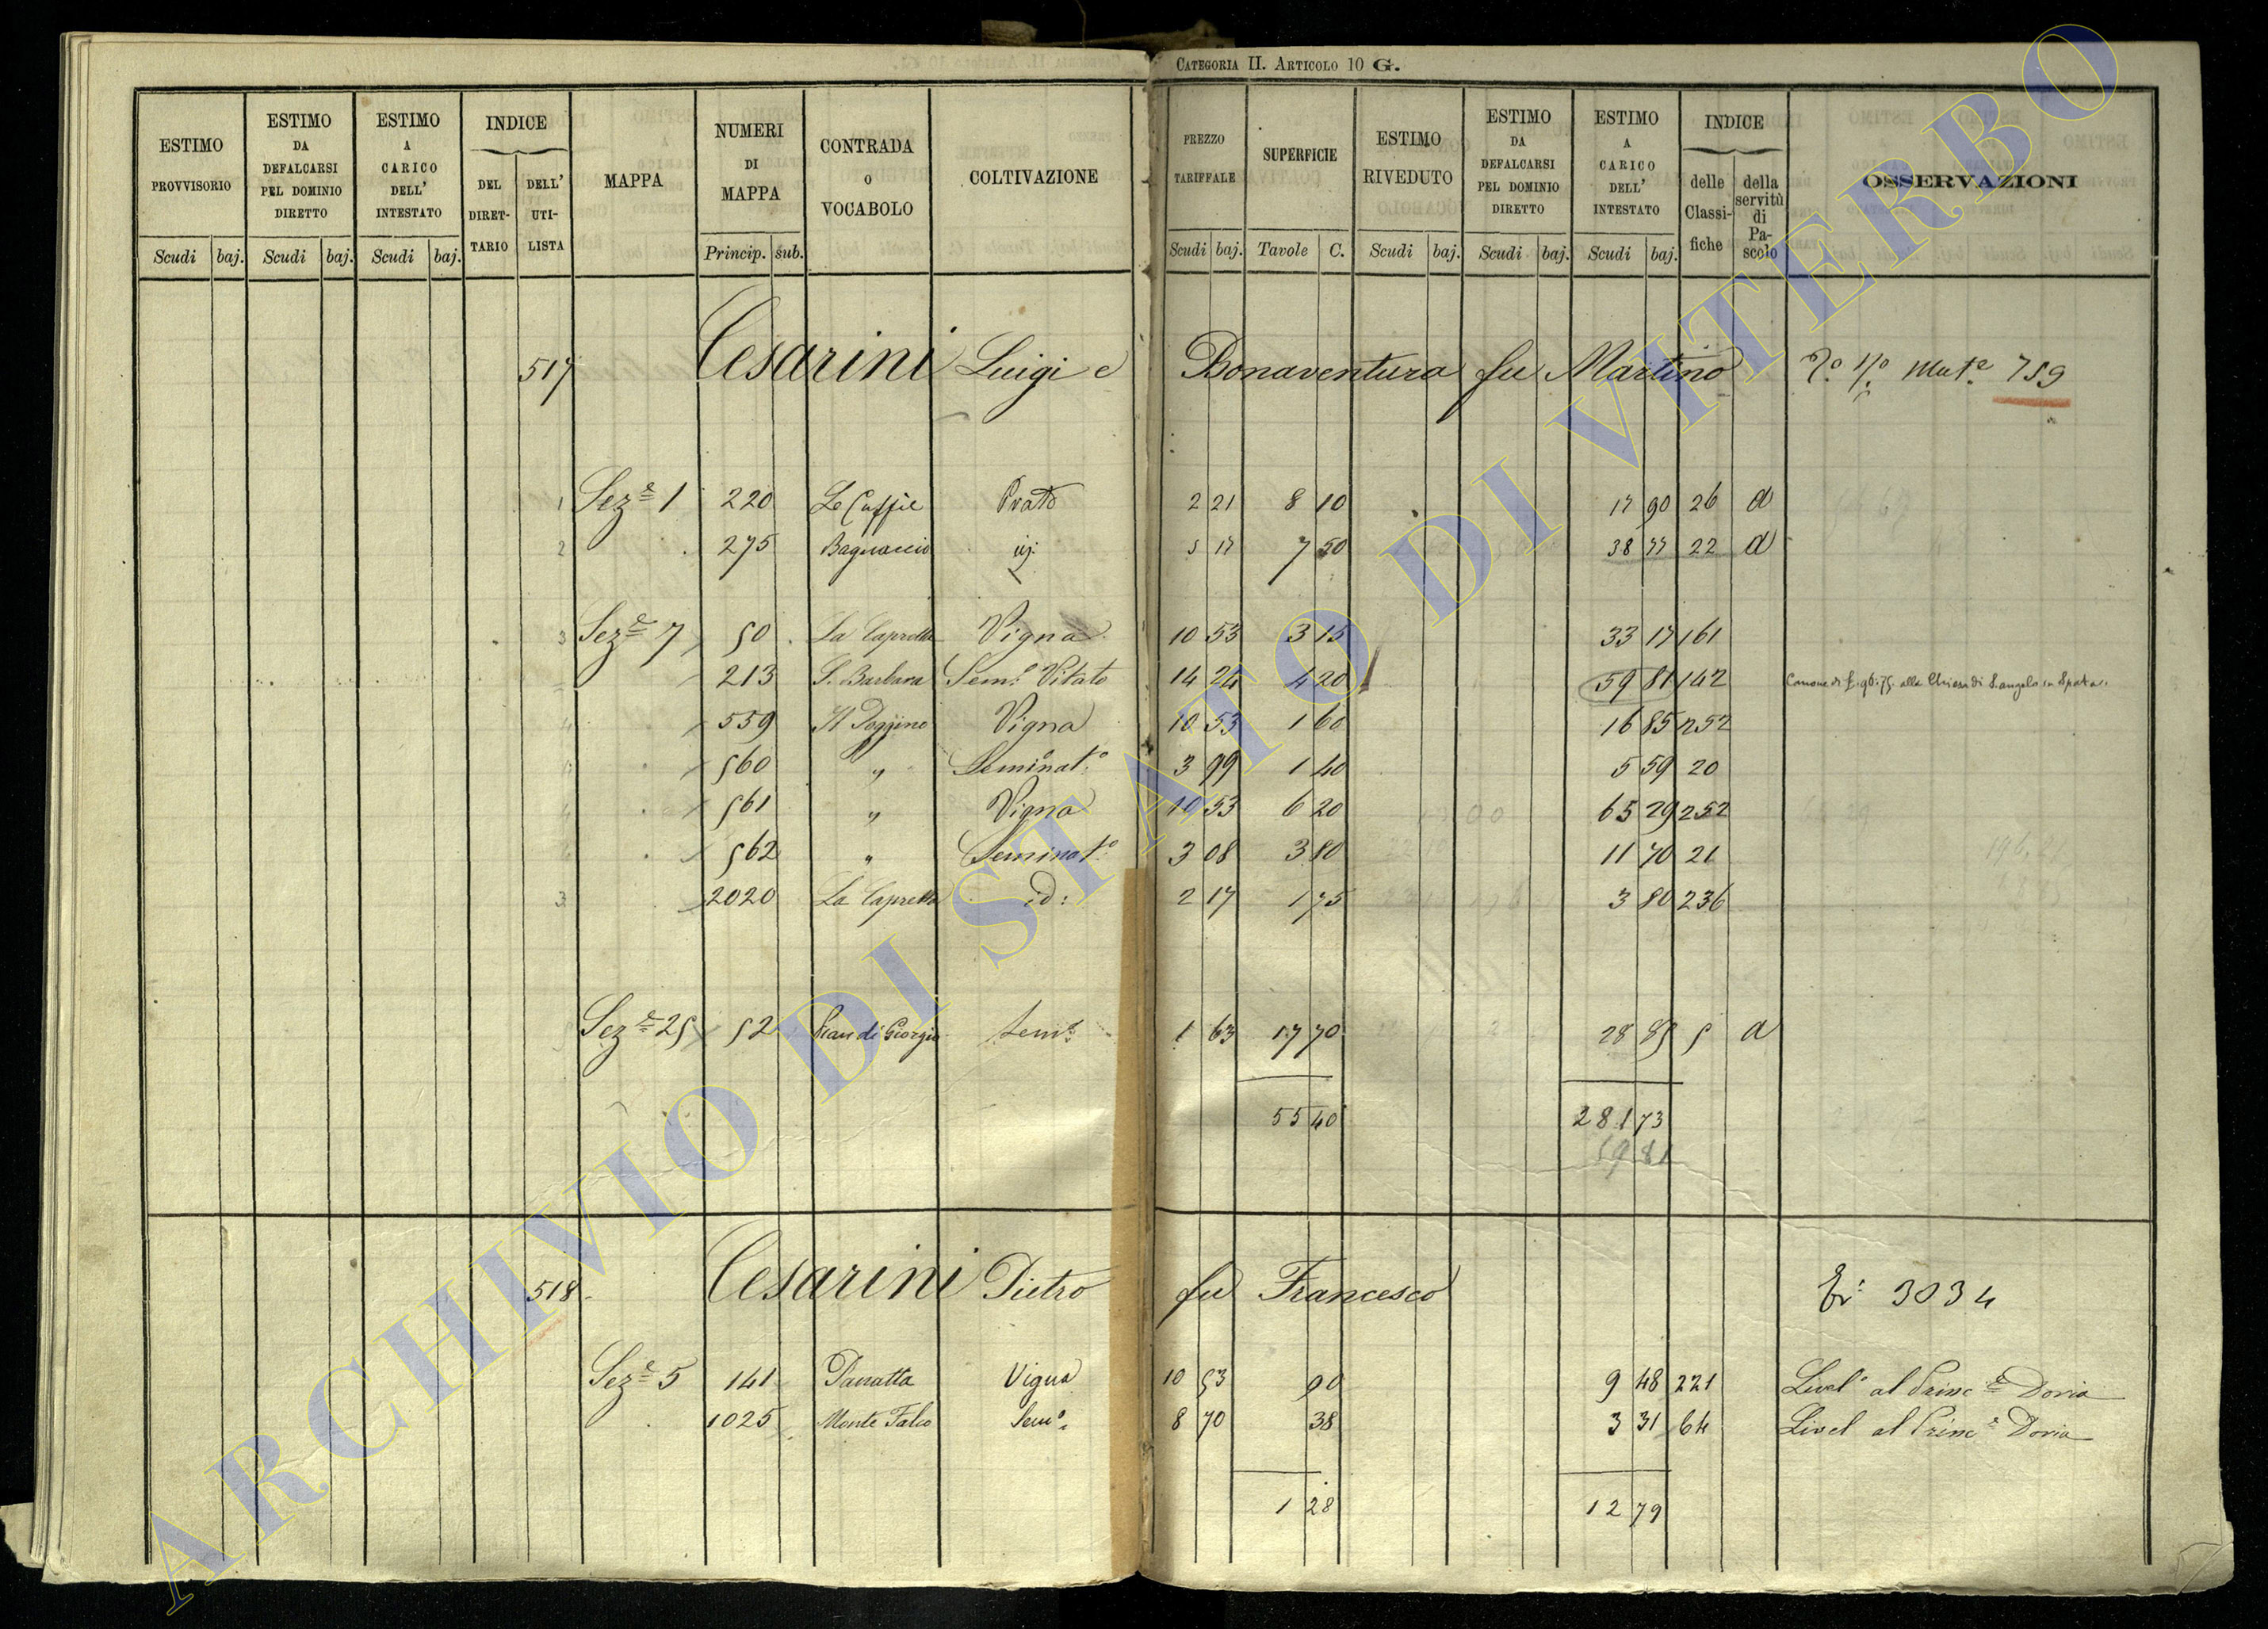 CATEGORIA II. ARTICOLO 10 G.
ESTIMO PROVVISORIO Scudi baj.
ESTIMO DA DEFALCARSI PEL DOMINIO DIRETTO Scudi baj.
ESTIMO A CARICO DELL' INTESTATO Scudi baj.
INDICE DEL DIRETTARIO DELL' UTILISTA
MAPPA
NUMERI DI MAPPA Princip. sub.
CONTRADA O VOCABOLO
COLTIVAZIONE
PREZZO TARIFFALE Scudi baj.
SUPERFICIE Tavole C.
ESTIMO RIVEDUTO Scudi baj.
ESTIMO DA DEFALCARSI PEL DOMINIO DIRETTO Scudi baj.
ESTIMO A CARICO DELL' INTESTATO Scudi baj.
INDICE delle Classifiche della servitù di Pascolo
OSSERVAZIONI
517 Cesarini Luigi e Bonaventura fu Martino Mut.e 759
1 Sez.e 1 220 Prato 2 21 8 10 17 90 26 a
2 275 Bagnaccio 5 17 7 50 38 77 22 a
3 Sez.e 7 50 La Capretta Vigna 10 53 3 15 33 17 161
213 S. Barbara Sem.o Vitato 14 24 4 20 59 81 142 Canone di £. 96:75 alla Chiesa di S. angelo in Spata
559 Il Poggino Vigna 10 53 1 60 16 85 252
560 " Seminat.o 3 99 1 40 5 59 20
561 " Vigna 10 53 6 20 65 29 252
562 " Seminat.o 3 08 3 80 11 70 21
3 2020 La Capretta id: 2 17 1 75 3 80 236
Sez.e 25 52 Pian di Giorgio Sem.o 1 63 17 70 28 85 5 a
55 40 281 73
59 81
518 Cesarini Pietro fu Francesco 3034
Sez.e 5 141 Vigna 10 53 90 9 48 221 Livel.o al Princ.e Doria
1025 Monte Falco Sem.o 8 70 38 3 31 64 Livel al Princ.e Doria
1 28 12 79
ARCHIVIO DI STATO DI VITERBO